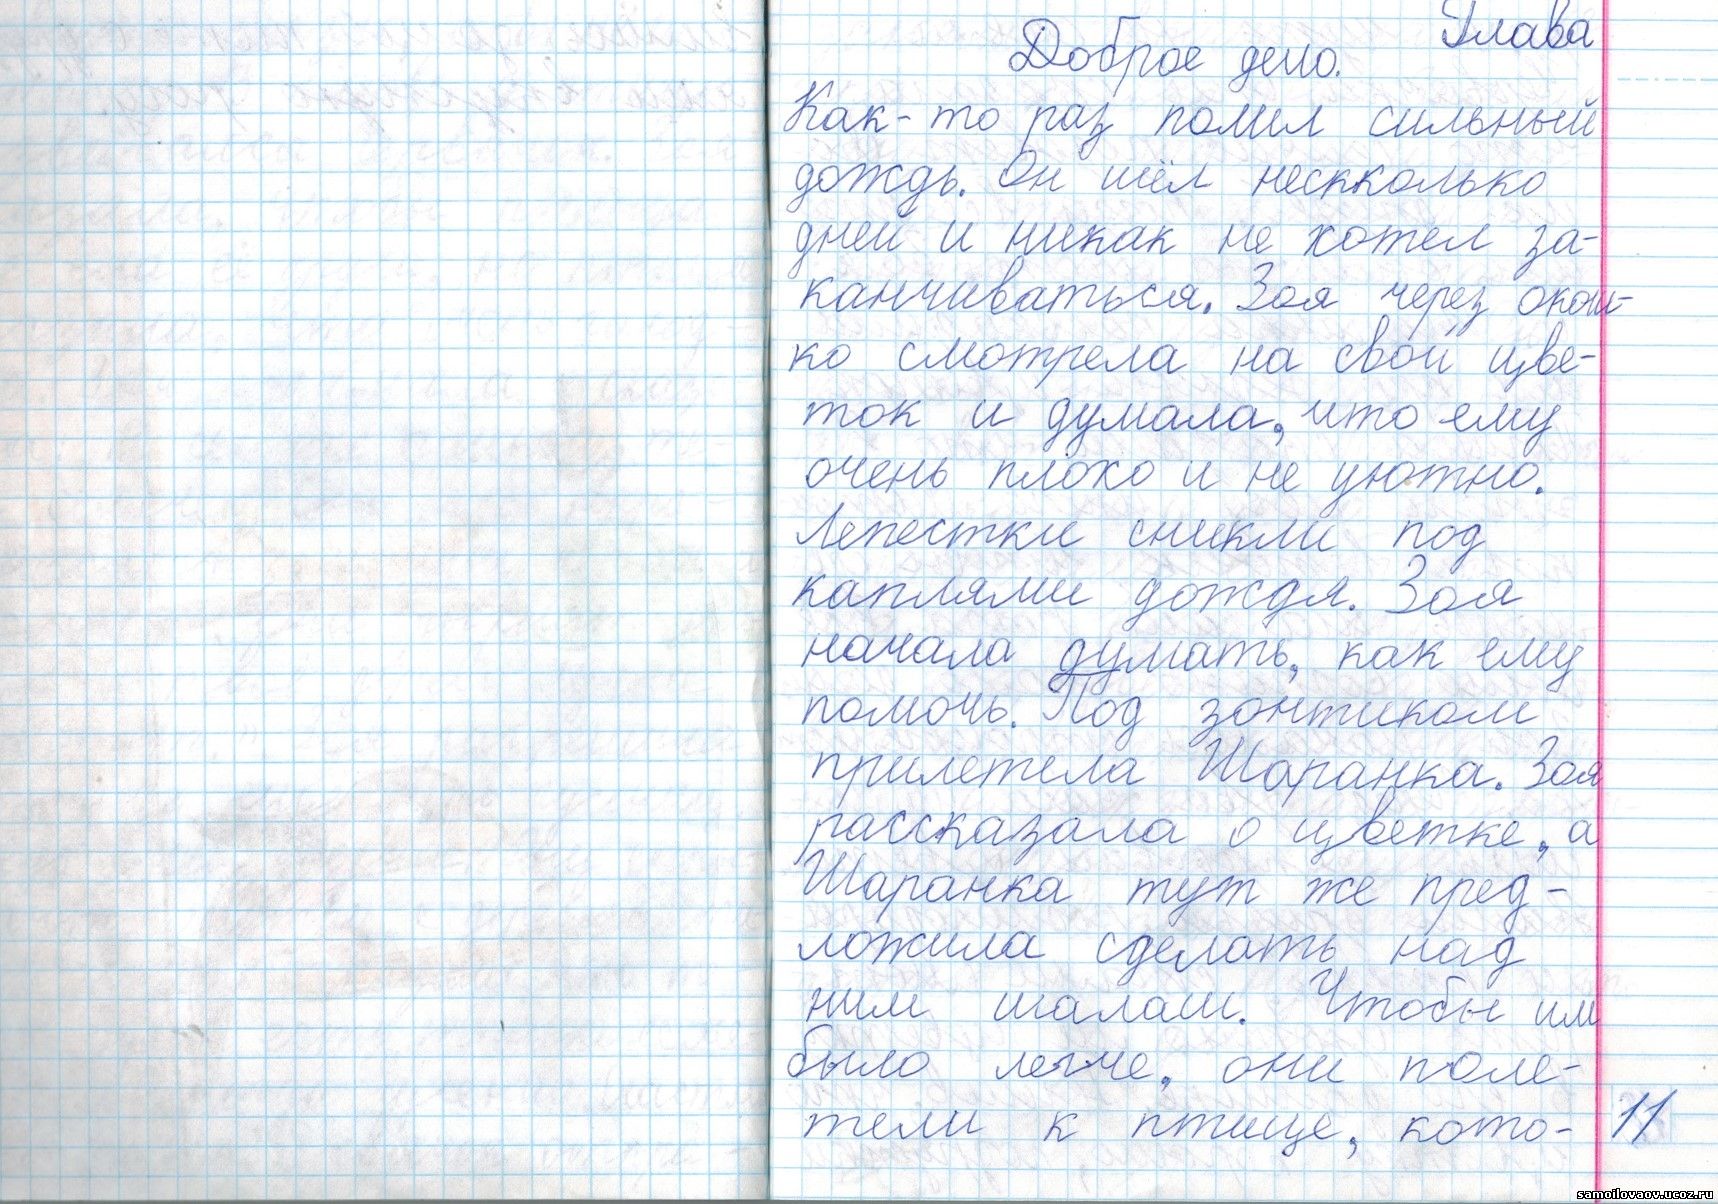 Глава
Доброе дело.
Как-то раз полил сильный
дождь. Он шёл нескколько
дней и никак не хотел за-
канчиваться. Зоя через окош-
ко смотрела на свой цве-
ток и думала, что ему
очень плохо и не уютно.
Лепестки сникли под
каплями дождя. Зоя
начала думать, как ему
помочь. Под зонтиком
прилетела Шаранка. Зоя
рассказала о цветке, а
Шаранка тут же пред-
ложила сделать над
ним шалаш. Чтобы им
было легче, они поле-
тели к птице, кото-
11
samoilovaov.ucoz.ru